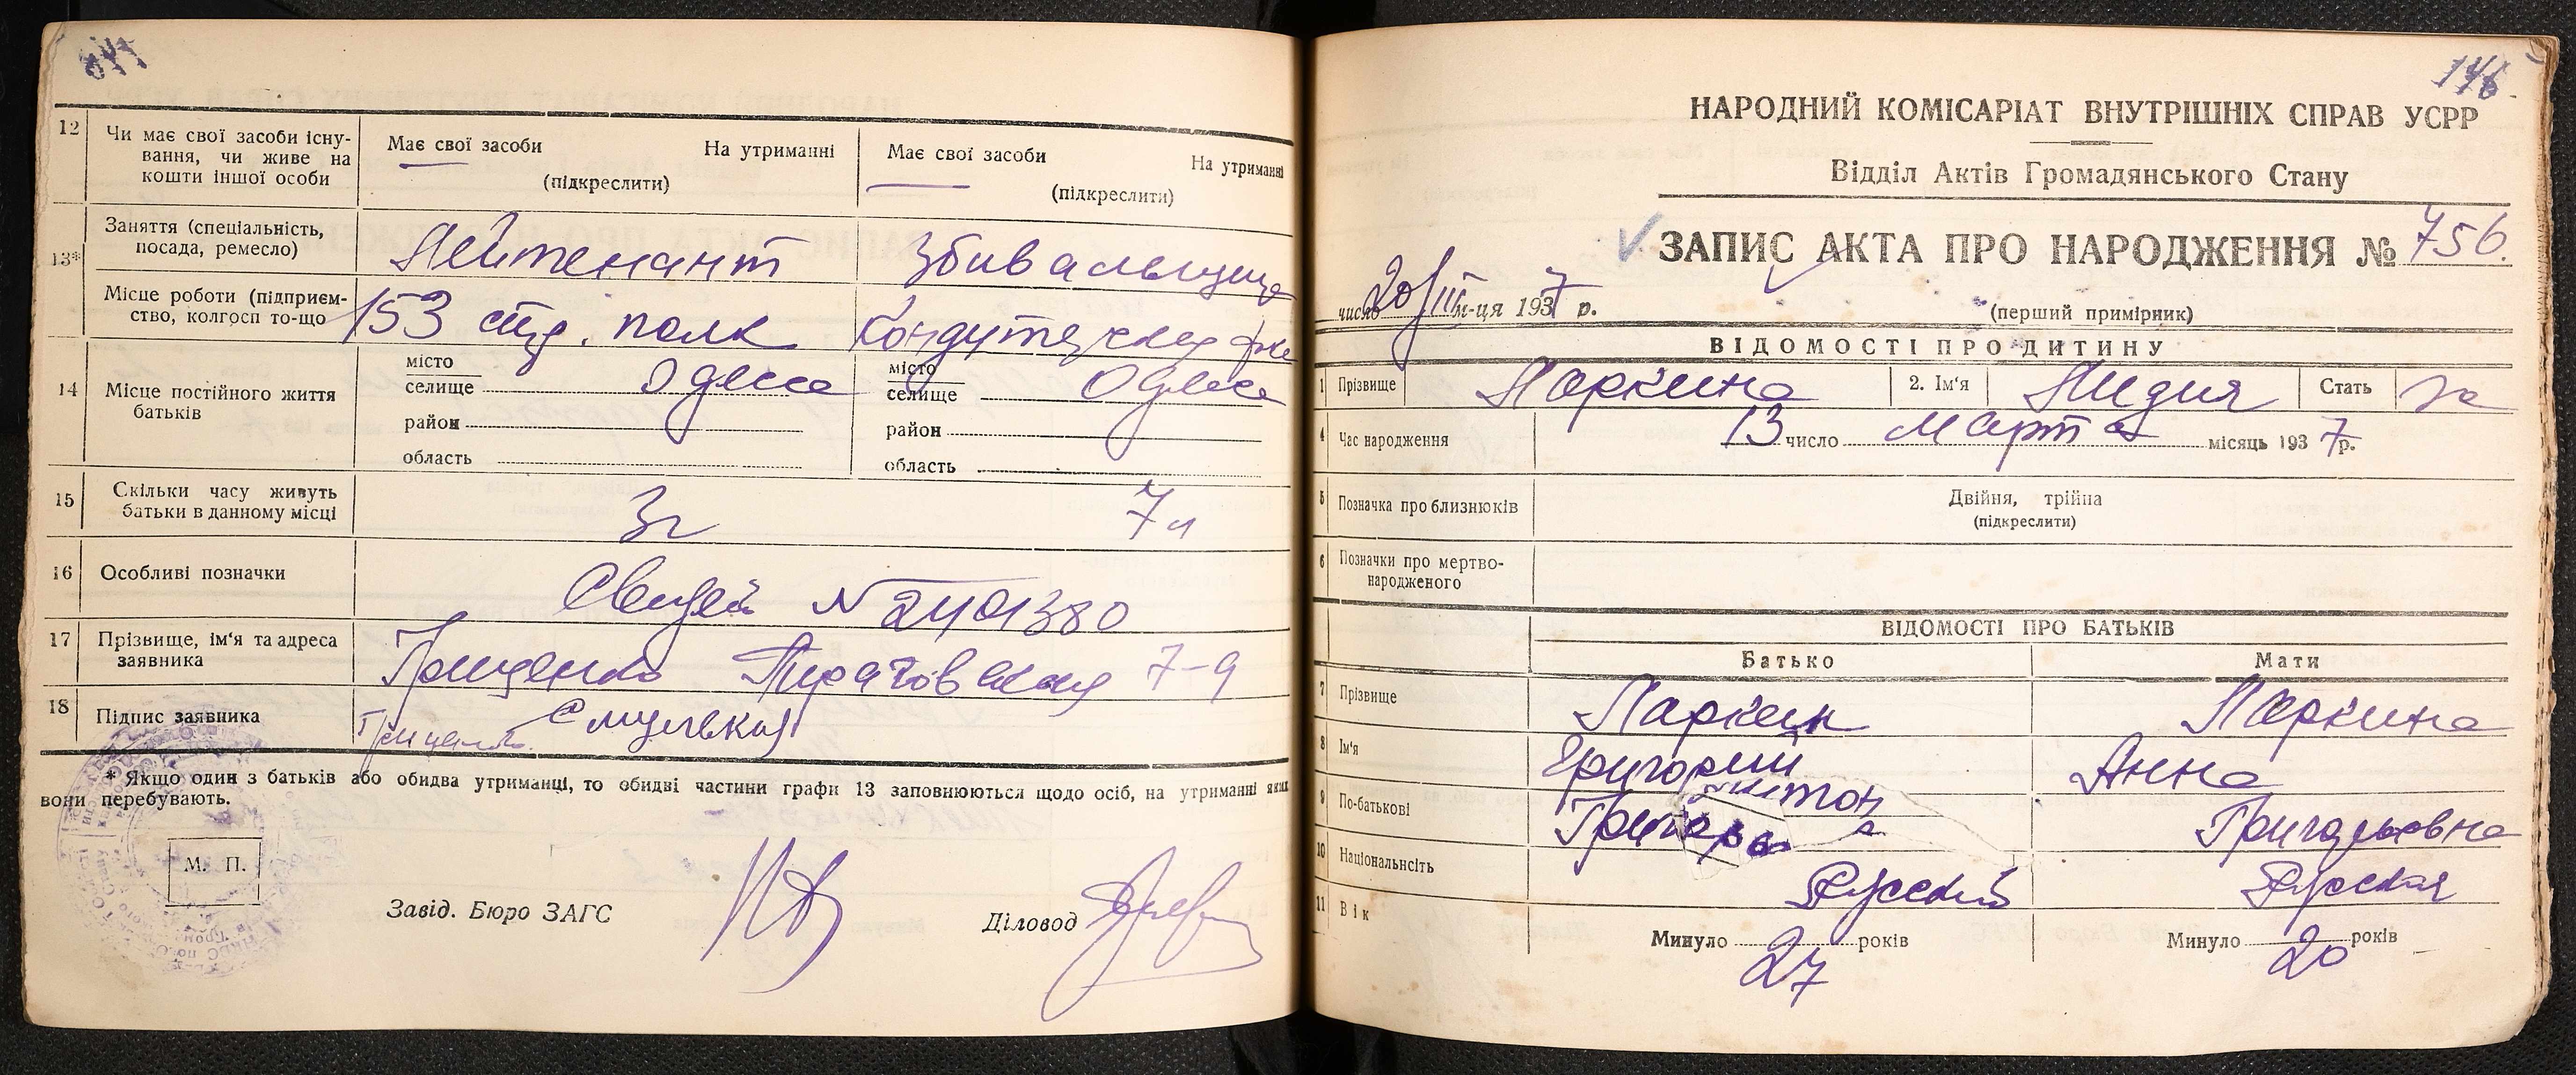 12
Чи має свої засоби існу-
вання, чи живе на
кошти іншої особи
Має свої засоби На утриманні
(підкреслити)
Має свої засоби На утриманні
(підкреслити)
13*
Заняття (спеціальність,
посада, ремесло)
Лейтенант
Збивальщица
Місце роботи (підприєм-
ство, колгосп то-що
153 стр. полк
14
Місце постійного життя
батьків
місто
селище Одесса
район
область
місто
селище Одесса
район
область
15
Скільки часу живуть
батьки в данному місці
3 г
7 л
16
Особливі позначки
№ 2401380
17
Прізвище, ім'я та адреса
заявника
Гриценко 7-9
18
Підпис заявника
Гриценко
* Якщо один з батьків або обидва утриманці, то обидві частини графи 13 заповнюються щодо осіб, на утриманні яких
вони перебувають.
М. П.
Завід. Бюро ЗАГС
Діловод
146
НАРОДНИЙ КОМІСАРІАТ ВНУТРІШНІХ СПРАВ УСРР
Відділ Актів Громадянського Стану
ЗАПИС АКТА ПРО НАРОДЖЕННЯ № 756.
число 20/III м-ця 1937 р.
(перший примірник)
ВІДОМОСТІ ПРО ДИТИНУ
1 Прізвище Ларкина 2. Ім'я Лидия Стать ж
4 Час народження 13 число Марта місяць 1937 р.
5 Позначка про близнюків
Двійня, трійна
(підкреслити)
6 Позначки про мертво-
народженого
ВІДОМОСТІ ПРО БАТЬКІВ
Батько Мати
7 Прізвище Ларкин Ларкина
8 Ім'я Григорий Анна
9 По-батькові Григорьевна
10 Національнсіть Русский Русская
11 Вік
Минуло 27 років
Минуло 20 років